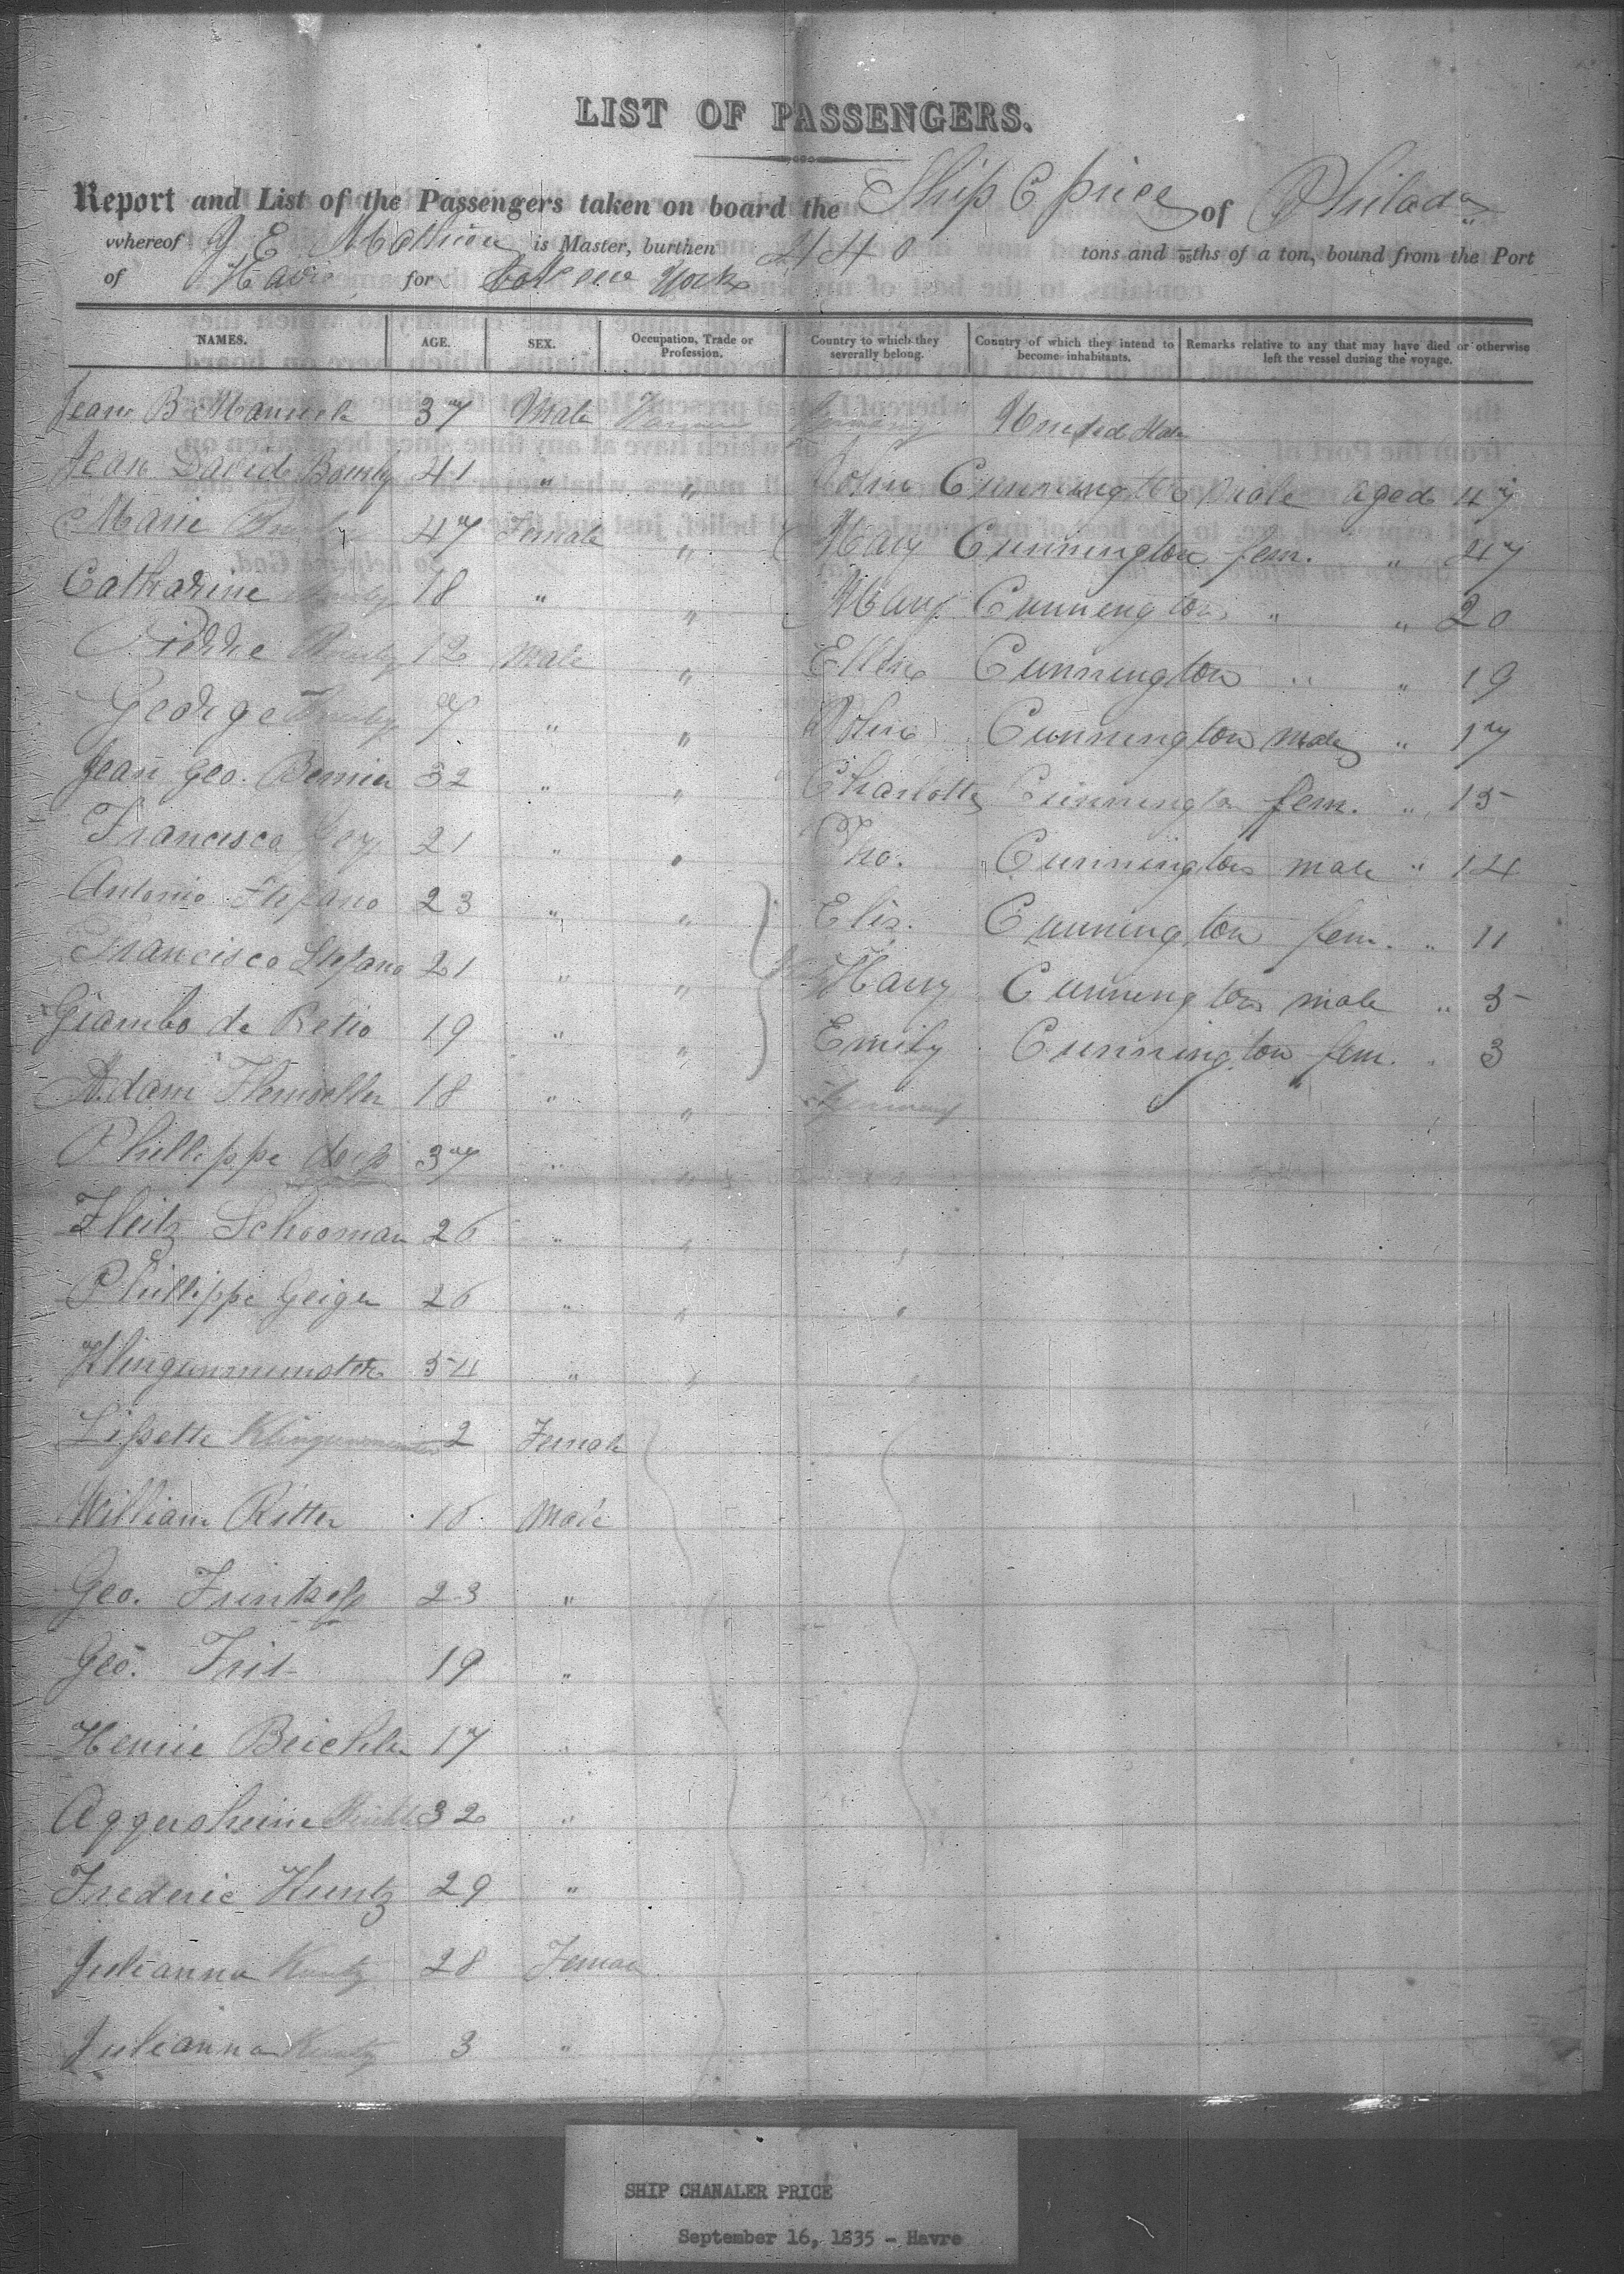 LIST OF PASSENGERS.
Report and List of the Passengers taken on board the Ship C price of Philada
whereof J. E. Mathieu is Master, burthen 440 tons and 95ths of a ton, bound from the Port
of Havre for New York
NAMES. AGE. SEX. Occupation, Trade or Profession. Country to which they severally belong. Country of which they intend to become inhabitants. Remarks relative to any that may have died or otherwise left the vessel during the voyage.
Jean B 37 Male Germany United State
Jean David 41 " " John Cunnington Male aged 47
Marie 47 Female " Mary Cunnington fem. " 47
Catharine 18 " " Mary Cunnington " " 20
Pierre 12 Male " Ellen Cunnington " " 19
George 7 " " John Cunnington male " 17
Jean Geo. Bernier 32 " " Charlotte Cunnington fem. " 15
Francisco 21 " " Tho. Cunnington male " 14
Antonio Stefano 23 " " Elis. Cunnington fem. " 11
Francisco Stefano 21 " " Harry Cunnington male " 5
Giambo de Retio 19 " " Emily Cunnington fem. " 3
Adam 18 " " Germany
Phillippe 37 " "
Schooman 26 " " "
Phillippe Geiger 26 " " "
Klingunmunster 54 " " "
Lissette Klingunmunster 2 Female
William Ritter 18 Male
Geo. 23 "
Geo. Frit 19 "
Henrie Beichler 17 "
Aggersheim 32 "
Frederic Kuntz 29 "
Julianna Kuntz 28 Female
Julianna Kuntz 3 "
SHIP CHANALER PRICE
September 16, 1835 - Havre